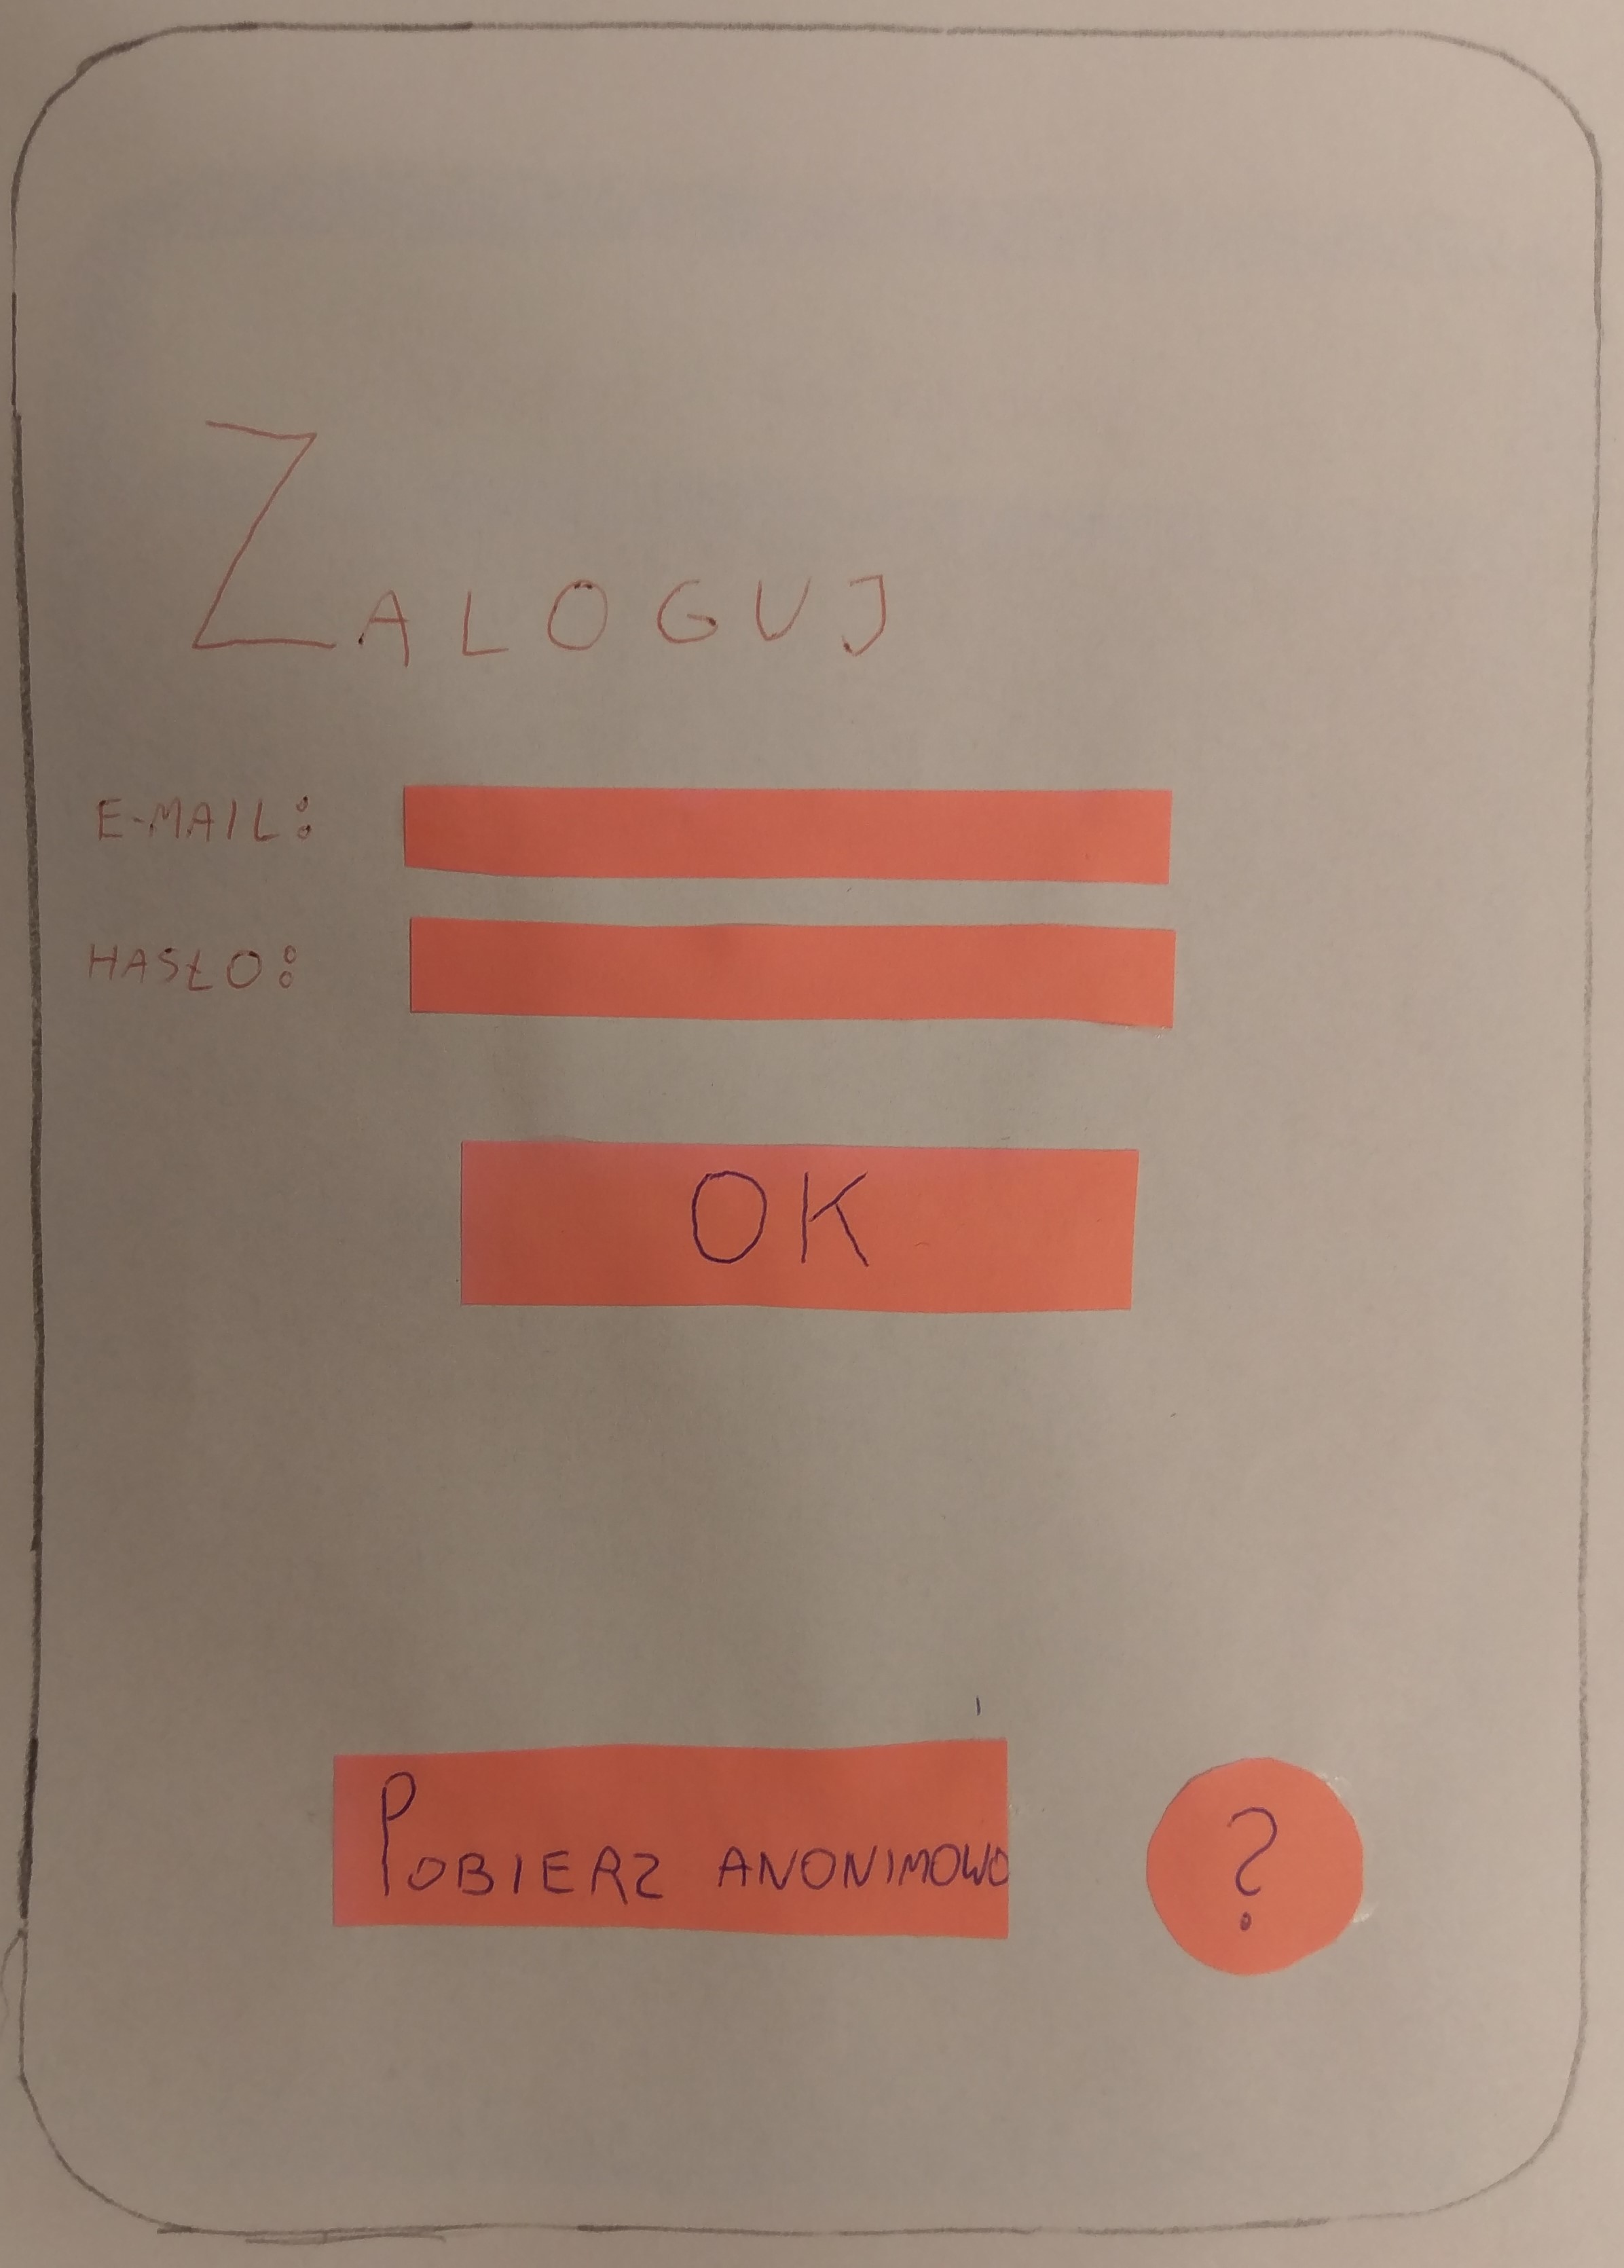 ZALOGUJ
E-MAIL:
HASŁO:
OK
POBIERZ ANONIMOWO
?